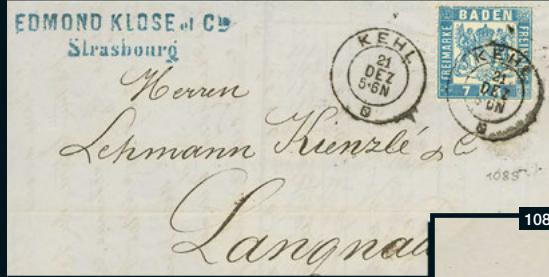 EDMOND KLOSE et Cie
Strasbourg
KEHL
21
DEZ
5·6N
BADEN
FREIMARKE
FREI
7
KEHL
21
DEZ
5·6N
Herren
Lehmann Kienzlé & C
1085
Langnau
108